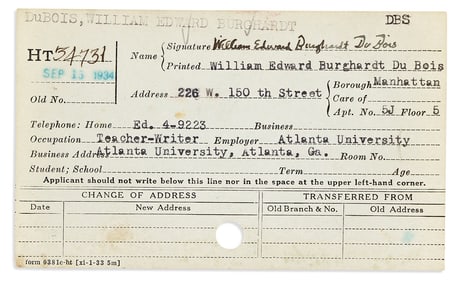 DuBOIS, WILLIAM EDWARD BURGHARDT
DBS
HT54731
SEP 13 1934
Name { Signature William Edward Burghardt Du Bois
Printed William Edward Burghardt Du Bois
Old No.
Address 226 W. 150 th Street { Borough Manhattan
Care of
Apt. No. 5J Floor 5
Telephone: Home Ed. 4-9223 Business
Occupation Teacher-Writer Employer Atlanta University
Business Address Atlanta University, Atlanta, Ga. Room No.
Student; School Term Age
Applicant should not write below this line nor in the space at the upper left-hand corner.
CHANGE OF ADDRESS TRANSFERRED FROM
Date New Address Old Branch & No. Old Address
form 6381c-ht [xi-1-33 5m]